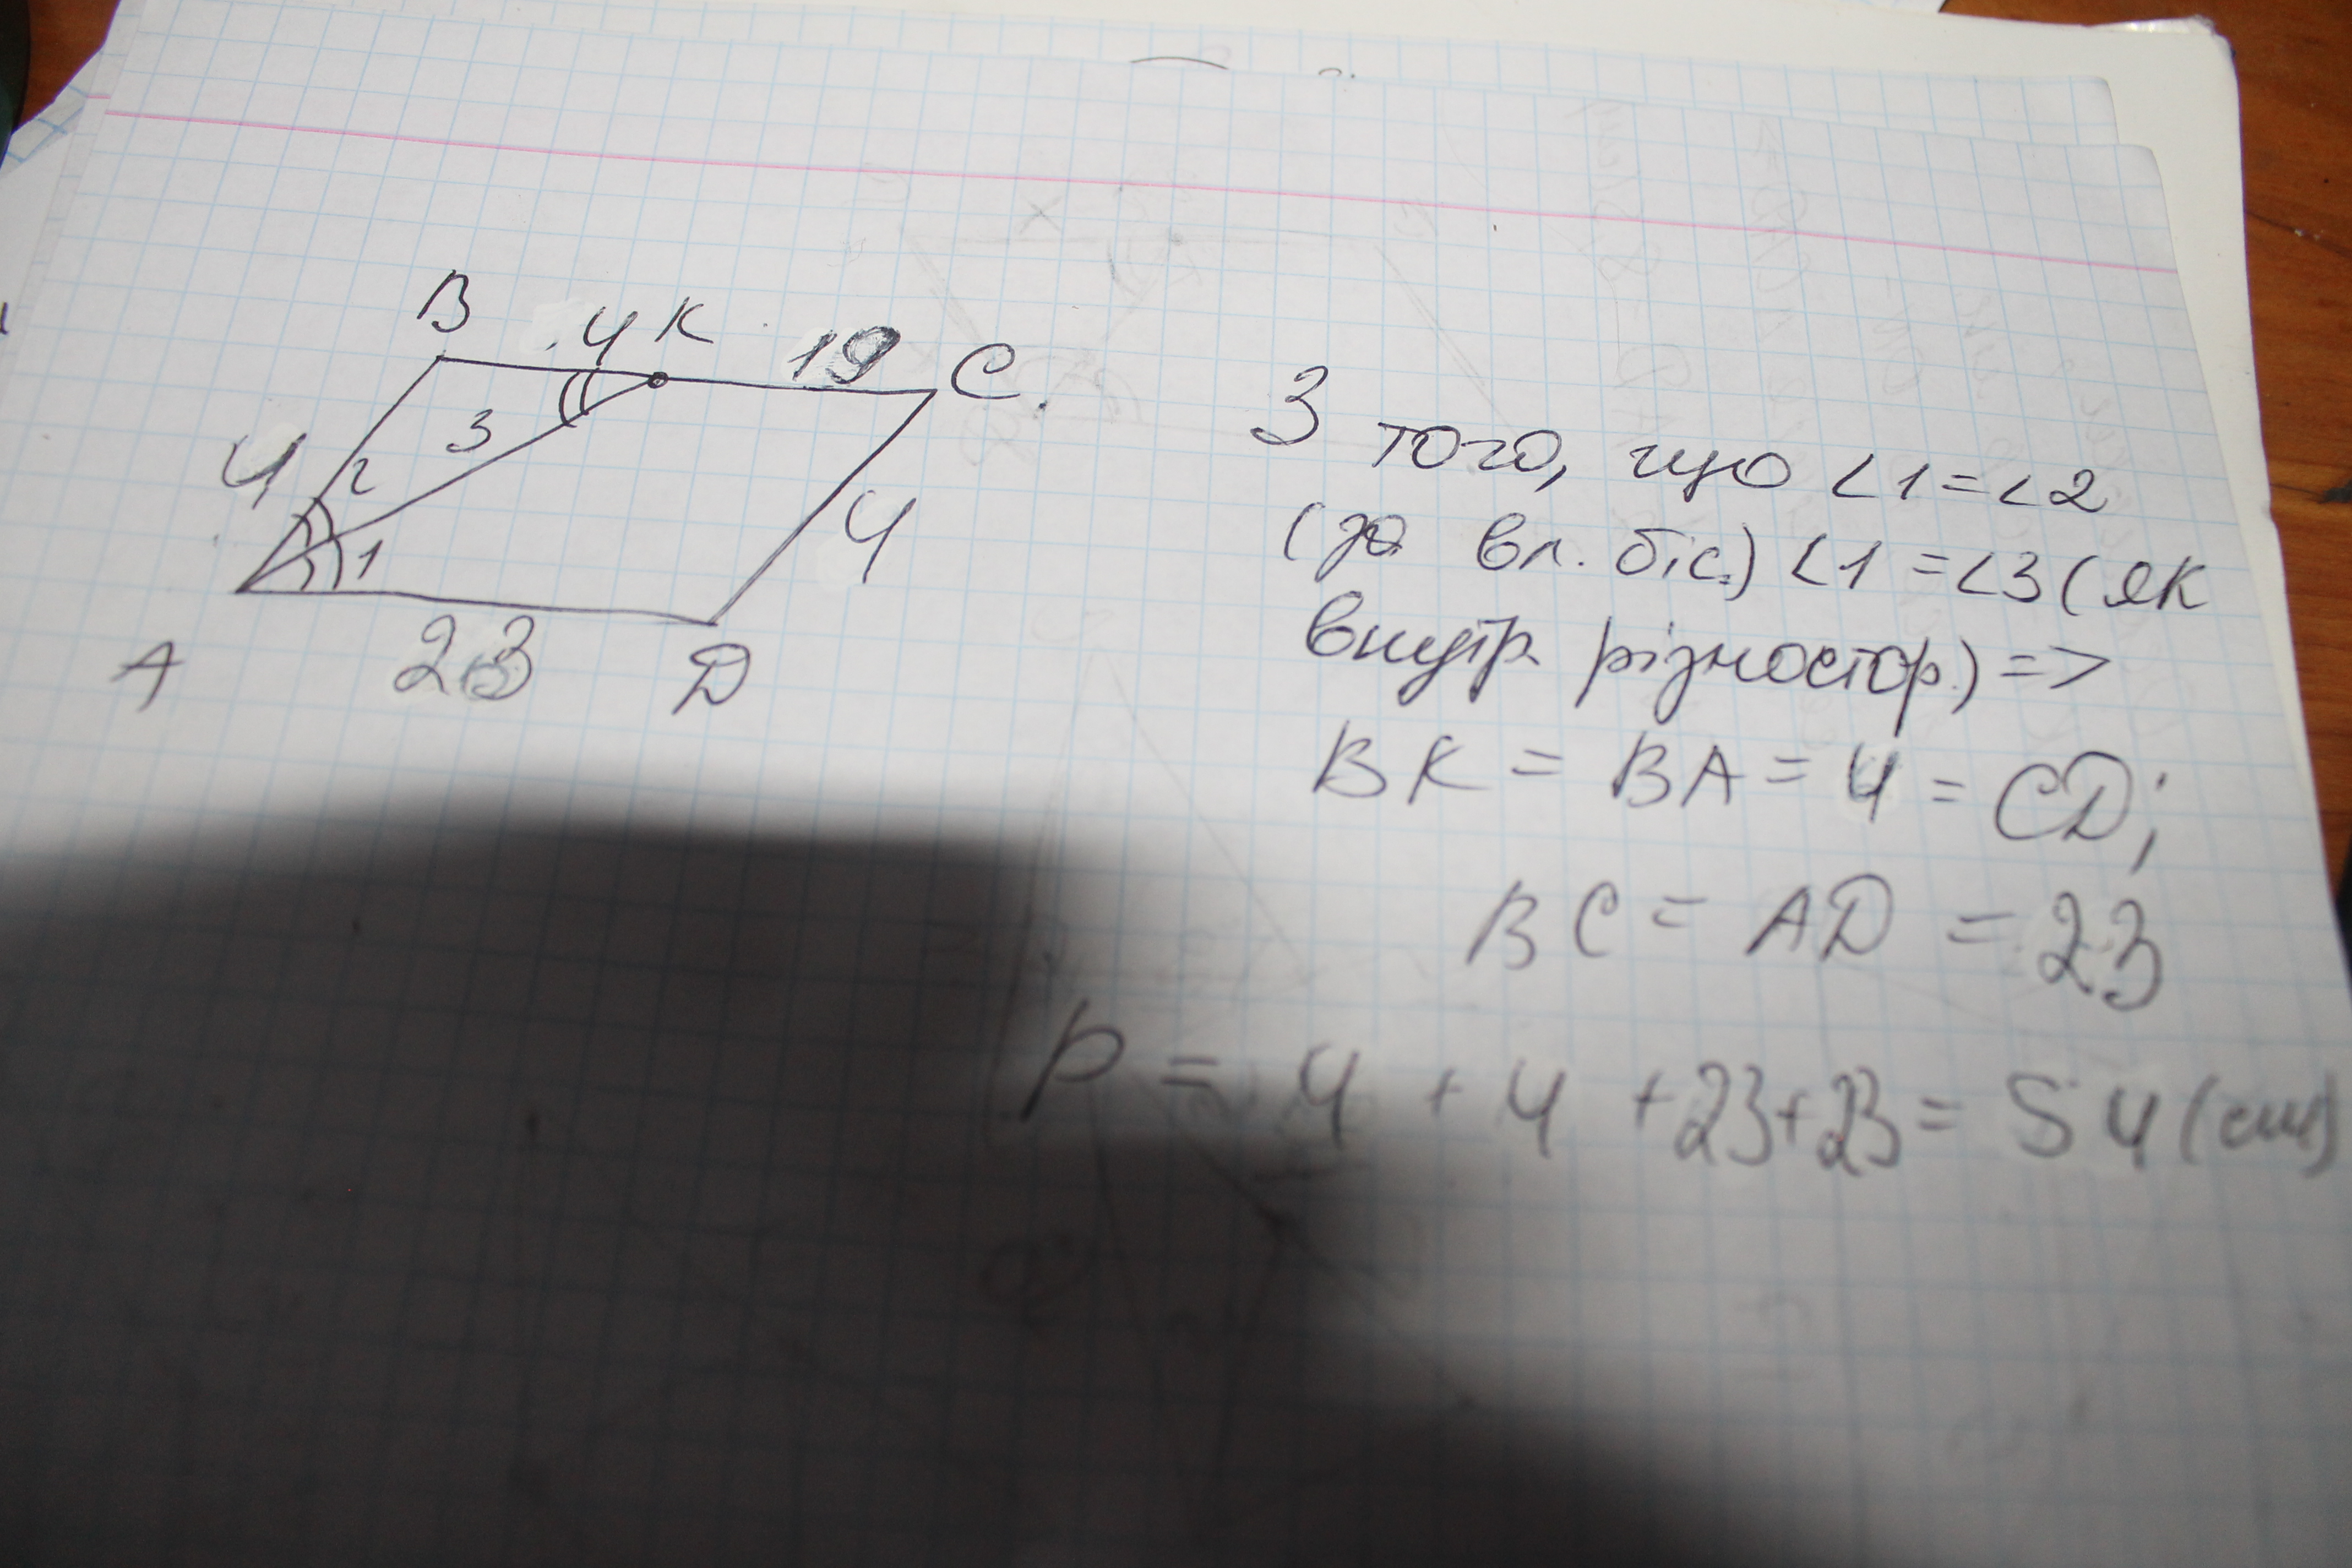 B 4 K 19 C.
4 2 3 4
1
A 23 D
З того, що ∠1=∠2
(за вл. біс.) ∠1=∠3 (як
внутр. різностор.) =>
BK = BA = 4 = CD;
BC = AD = 23
P = 4 + 4 + 23 + 23 = 54 (см)